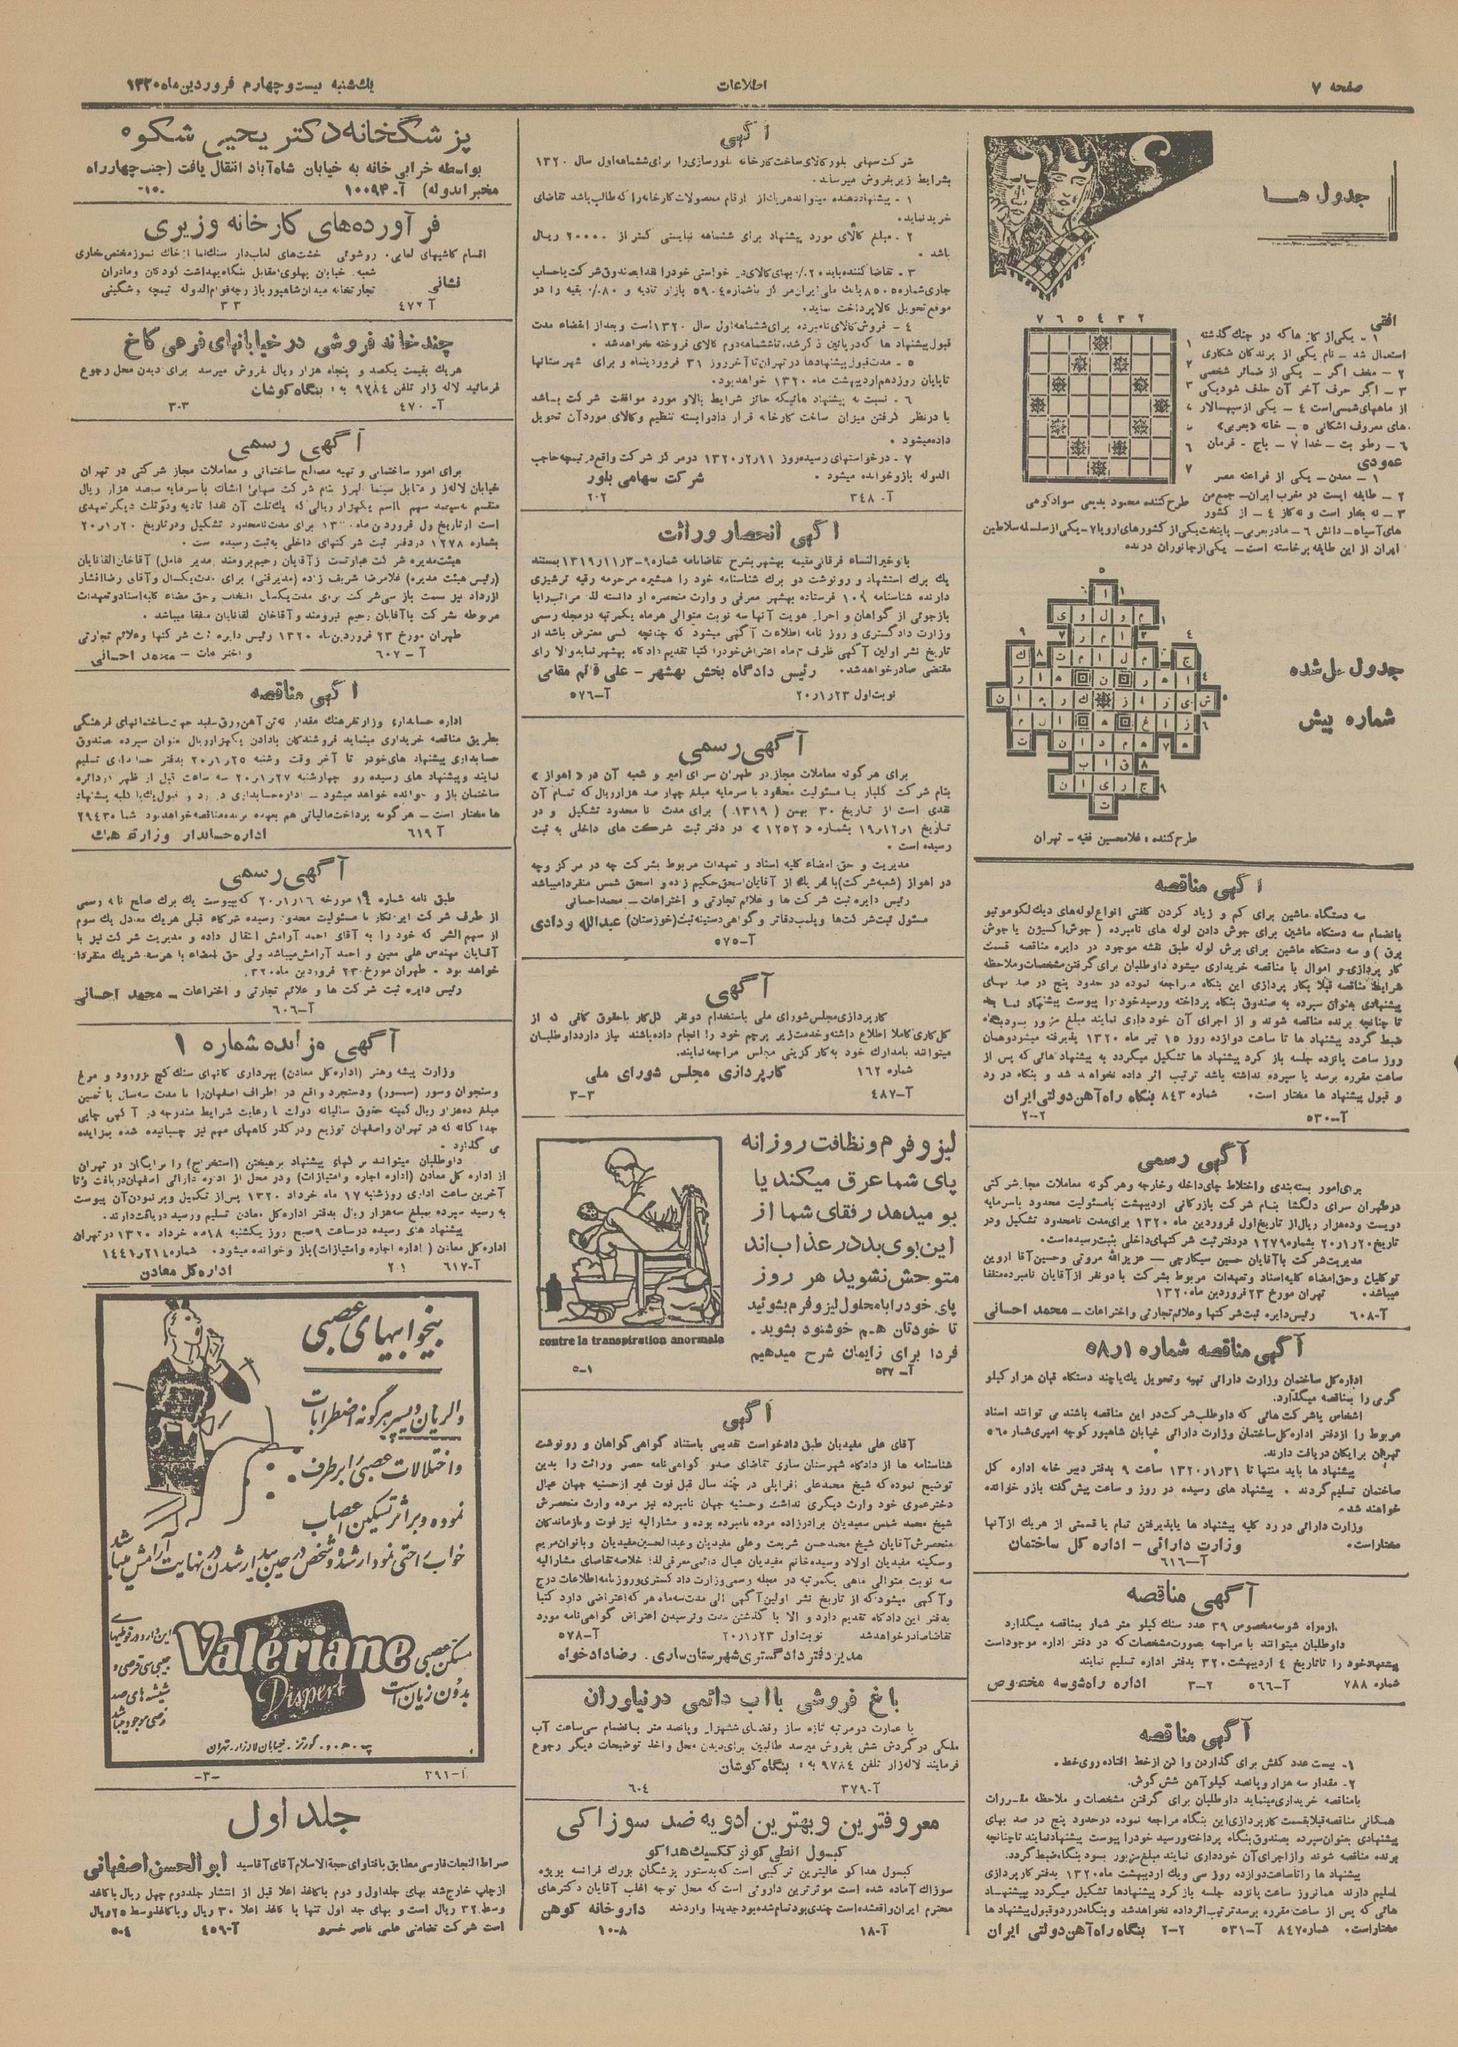 صفحه ۷
اطلاعات
یکشنبه بیست و چهارم فروردین ماه ۱۳۲۰
جدول ها
افقی
۷ ۶ ۵ ٤ ۳ ۲
استعمال شد - نام یکی از پرندگان شکاری
۲ - مخفف اگر - یکی از ضمائر شخصی
۳ - اگر حرف آخر آن حذف شود یکی
از ماههای شمسی است ٤ - یکی از سپهسالار
های معروف اشکانی ۵ - خانه «بعربی»
۶ - رطوبت - خدا ۷ - باج - فرمان
عمودی
۱ - معدن - یکی از فراعنه مصر
۲ - طایفه ایست در مغرب ایران - جمع من
۳ - نه بخار است و نه گاز ٤ - از کشور
طرح کننده محمود بدیعی سوادکوهی
های آسیا ۵ - دانش ۶ - مادر بعربی - پایتخت یکی از کشورهای اروپا ۷ - یکی از سلسله سلاطین
ایران از این طایفه برخاسته است - یکی از جانوران درنده
جدول حل شده
شماره پیش
طرح کننده : غلامحسین فقیه - تهران
آگهی مناقصه
سه دستگاه ماشین برای کم و زیاد کردن کلفتی انواع لوله های دیگ لکوموتیو
بانضمام سه دستگاه ماشین برای جوش دادن لوله های نامبرده ( جوش اکسیژن یا جوش
برق ) و سه دستگاه ماشین برای برش لوله طبق نقشه موجود در دایره مناقصه قسمت
کار پردازی و اموال با مناقصه خریداری میشود داوطلبان برای گرفتن مشخصات و ملاحظه
شرایط مناقصه قبلا بکار پردازی این بنگاه مراجعه نموده در حدود پنج در صد بهای
پیشنهادی بعنوان سپرده به صندوق بنگاه پرداخته و رسید خود را پیوست پیشنهاد نمایند
تا چنانچه برنده مناقصه شوند و از اجرای آن خود داری نمایند مبلغ مزبور بسود بنگاه
ضبط گردد پیشنهاد ها تا ساعت دوازده روز ۱۵ تیر ماه ۱۳۲۰ پذیرفته میشود و همان
روز ساعت پانزده جلسه باز کرد پیشنهاد ها تشکیل میگردد به پیشنهاد هائی که پس از
ساعت مقرره برسد یا سپرده نداشته باشد ترتیب اثر داده نخواهد شد و بنگاه در رد
و قبول پیشنهاد ها مختار است . شماره ۸٤۳ بنگاه راه آهن دولتی ایران
آ-۵۳۰ ۲-۲
آگهی رسمی
برای امور بسته بندی و اختلاط چای داخله و خارجه و هر گونه معاملات مجاز شرکتی
در طهران سرای دلگشا بنام شرکت بازرگانی اردیبهشت با مسئولیت محدود با سرمایه
دویست و ده هزار ریال از تاریخ اول فروردین ماه ۱۳۲۰ برای مدت نامحدود تشکیل و در
تاریخ ۲۰ر۱ر۲۰ بشماره ۱۲۷۹ در دفتر ثبت شرکتهای داخلی بثبت رسیده است .
مدیریت شرکت با آقایان حسین سیگارچی - عزیزالله مروتی و حسین آقا اروین
توکلیان و حق امضاء کلیه اسناد و تعهدات مربوط بشرکت با دو نفر از آقایان نامبرده متفقا
میباشد . تهران مورخ ۲۳ فروردین ماه ۱۳۲۰
آ-۶۰۸ رئیس دایره ثبت شرکتها و علائم تجارتی و اختراعات - محمد احسانی
آگهی مناقصه شماره ۱ر۵۸
اداره کل ساختمان وزارت دارائی تهیه و تحویل یک یا چند دستگاه قپان هزار کیلو
گرمی را بمناقصه میگذارد .
اشخاص یا شرکت هائی که داوطلب شرکت در این مناقصه باشند می توانند اسناد
مربوط را از دفتر اداره کل ساختمان وزارت دارائی خیابان شاهپور کوچه امیری شماره ۵۶۰
تهران برایگان دریافت دارند .
پیشنهاد ها باید منتها تا ۳۱ر۱ر۱۳۲۰ ساعت ۹ بدفتر دبیر خانه اداره کل
ساختمان تسلیم گردند . پیشنهاد های رسیده در روز و ساعت پیش گفته بازو خوانده
خواهند شد .
وزارت دارائی در رد کلیه پیشنهاد ها یا پذیرفتن تمام یا قسمتی از هر یک از آنها
مختار است . وزارت دارائی - اداره کل ساختمان
آ-۶۱۶
آگهی مناقصه
اداره راه شوسه مخصوص ۳۹ عدد سنگ کیلو متر شمار بمناقصه میگذارد
داوطلبان میتوانند با مراجعه بصورت مشخصات که در دفتر اداره موجود است
پیشنهاد خود را تا تاریخ ٤ اردیبهشت ۳۲۰ بدفتر اداره تسلیم نمایند
شماره ۷۸۸ آ-۵۶۶ ۲-۳ اداره راه شوسه مخصوص
آگهی مناقصه
۱- بیست عدد کفش برای گذاردن واگن از خط افتاده روی خط .
۲- مقدار سه هزار و پانصد کیلو آهن شش گوش .
با مناقصه خریداری مینماید داوطلبان برای گرفتن مشخصات و ملاحظه مقررات
همگانی مناقصه قبلا بقسمت کار پردازی این بنگاه مراجعه نموده در حدود پنج در صد بهای
پیشنهادی بعنوان سپرده بصندوق بنگاه پرداخته و رسید خود را پیوست پیشنهاد نمایند تا چنانچه
برنده مناقصه شوند و از اجرای آن خودداری نمایند مبلغ مزبور بسود بنگاه ضبط گردد .
پیشنهاد ها را تا ساعت دوازده روز سی و یک اردیبهشت ماه ۱۳۲۰ بدفتر کار پردازی
تسلیم دارند همانروز ساعت پانزده جلسه باز کرد پیشنهادها تشکیل میگردد پیشنهاد
هائی که پس از ساعت مقرره برسد ترتیب اثر داده نخواهد شد و بنگاه در رد و قبول پیشنهاد ها
مختار است . شماره ۸٤۷ آ-۵۳۱ ۲-۲ بنگاه راه آهن دولتی ایران
آگهی
شرکت سهامی بلور کالای ساخت کارخانه بلورسازی را برای ششماهه اول سال ۱۳۲۰
بشرایط زیر بفروش میرساند .
۱ - پیشنهاد دهنده میتواند هر یک از ارقام محصولات کارخانه را که طالب باشد تقاضای
خرید نماید .
۲ - مبلغ کالای مورد پیشنهاد برای ششماهه نبایستی کمتر از ۲۰۰۰۰ ریال
باشد .
۳ - تقاضا کننده باید ۲۰٪ بهای کالای در خواستی خود را نقدا بصندوق شرکت یا حساب
جاری شماره ۸۵۰۵ بانک ملی ایران مرکز یا شماره ۵۹۰٤ بازار تادیه و ۸۰٪ بقیه را در
موقع تحویل کالا پرداخت نماید .
٤ - فروش کالای نامبرده برای ششماهه اول سال ۱۳۲۰ است و بعد از انقضاء مدت
قبول پیشنهاد ها که در پائین ذکر شد، تا ششماهه دوم کالای فروخته نخواهد شد .
۵ - مدت قبول پیشنهادها در تهران تا آخر روز ۳۱ فروردینماه و برای شهرستانها
تا پایان روز دهم اردیبهشت ماه ۱۳۲۰ خواهد بود .
۶ - نسبت به پیشنهاد هائیکه حائز شرایط بالا و مورد موافقت شرکت باشد
با در نظر گرفتن میزان ساخت کارخانه قرار داد وابسته تنظیم و کالای مورد آن تحویل
داده میشود .
۷ - درخواستهای رسیده روز ۱۱ر۲ر۱۳۲۰ در مرکز شرکت واقع در تیمچه حاجب
الدوله باز و خوانده میشود . شرکت سهامی بلور
آ- ۳٤۸ ۲-۲
آگهی انحصار وراثت
بانو خیرالنساء فرقانی مقیمه بهشهر بشرح تقاضانامه شماره ۹-۳ر۱۱ر۱۳۱۹ بمستند
یک برگ استشهاد و رونوشت دو برگ شناسنامه خود را همشیره مرحومه رقیه ترشیزی
وزارت دادگستری و روز نامه اطلاعات آگهی میشود که چنانچه کسی معترض باشد از
تاریخ نشر اولین آگهی ظرف سه ماه اعتراض خود را کتبا تقدیم دادگاه بهشهر نماید والا رای
مقتضی صادر خواهد شد . رئیس دادگاه بخش بهشهر - علی قائم مقامی
نوبت اول ۲۳ر۱ر۲۰ آ-۵۷۶
آگهی رسمی
برای هر گونه معاملات مجاز در طهران سرای امیر و شعبه آن در « اهواز »
بنام شرکت گلبار با مسئولیت محدود با سرمایه مبلغ چهار صد هزار ریال که تمام آن
نقدی است از تاریخ ۳۰ بهمن ( ۱۳۱۹ ) برای مدت نا محدود تشکیل و در
تاریخ ۱ر۱۲ر۱۹ بشماره « ۱۲۵۲ » در دفتر ثبت شرکت های داخلی به ثبت
رسیده است .
مدیریت و حق امضاء کلیه اسناد و تعهدات مربوط بشرکت چه در مرکز و چه
در اهواز (شعبه شرکت) با هر یک از آقایان اسحق حکیم زده و اسحق شمس منفردا میباشد
رئیس دایره ثبت شرکت ها و علائم تجارتی و اختراعات - محمد احسانی
مسئول ثبت شرکت ها و پلمب دفاتر و گواهی دستینه ثبت (خوزستان) عبدالله ودادی
آ-۵۷۵
آگهی
کارپردازی مجلس شورای ملی باستخدام دو نفر گل کار با حقوق کافی که از
گل کاری کاملا اطلاع داشته و خدمت زیر پرچم خود را انجام داده باشند نیاز دارد داوطلبان
میتوانند با مدارک خود به کارگزینی مجلس مراجعه نمایند.
شماره ۱۶۲ کارپردازی مجلس شورای ملی
آ-٤۸۷ ۳-۳
لیزوفرم و نظافت روزانه
پای شما عرق میکند یا
بو میدهد رفقای شما از
این بوی بد در عذاب اند
متوحش نشوید هر روز
پای خود را با محلول لیزوفرم بشوئید
تا خودتان هم خوشنود بشوید .
فردا برای زایمان شرح میدهیم
contre la transpiration anormale
آ- ۵۳۷ ۱-۵
آگهی
آقای علی مفیدیان طبق دادخواست تقدیمی باستناد گواهی گواهان و رونوشت
شناسنامه ها از دادگاه شهرستان ساری تقاضای صدور گواهی نامه حصر وراثت را بدین
توضیح نموده که شیخ محمدعلی افرایلی در چند سال قبل فوت غیر از حسنیه جهان عیال
دخترعموی خود وارث دیگری نداشت و حسنیه جهان نامبرده نیز مرده وارث منحصرش
شیخ محمد شمس سعیدیان برادرزاده مرده نامبرده بوده و مشارالیه نیز فوت و بازماندگان
منحصرش آقایان شیخ محمد حسن شریعت و علی مفیدیان و عبدالحسین مفیدیان و بانوان مریم
و سکینه مفیدیان اولاد و سیده خانم مفیدیان عیال دائمی معرفی لذا خلاصه تقاضای مشارالیه
سه نوبت متوالی ماهی یکمرتبه در مجله رسمی وزارت دادگستری و روزنامه اطلاعات درج
و آگهی میشود که از تاریخ نشر اولین آگهی الی مدت سه ماه هر که اعتراضی دارد کتبا
بدفتر این دادگاه تقدیم دارد و الا با گذشتن مدت و نرسیدن اعتراض گواهی نامه مورد
تقاضا صادر خواهد شد نوبت اول ۲۳ر۱ر۲۰ آ-۵۷۸
مدیر دفتر دادگستری شهرستان ساری . رضا دادخواه
باغ فروشی با آب دائمی در نیاوران
با عمارت دو مرتبه تازه ساز و فضای ششهزار و پانصد متر بانضمام سی ساعت آب
ملکی در گردش شش بفروش میرسد طالبین برای دیدن محل و اخذ توضیحات دیگر رجوع
فرمایند لاله زار تلفن ۹۷۸٤ به : بنگاه کوشان
آ-۳۷۹ ٤-۶
معروفترین و بهترین ادویه ضد سوزاکی
کپسول آنتی گونو کگسیک هداکو
کپسول هداکو عالیترین ترکیبی است که بدستور پزشکان بزرگ فرانسه بویژه
سوزاک آماده شده است موثرترین داروئی است که محل توجه اغلب آقایان دکترهای
محترم ایران واقع شده است چندی بود تمام شده بود جدیدا وارد شد داروخانه کوهن
آ-۱۸ ۸-۱۰
پزشگخانه دکتر یحیی شکوه
بواسطه خرابی خانه به خیابان شاه آباد انتقال یافت (جنب چهارراه
مخبرالدوله) آ-۱۰۰۹۴ ۱۵-
فرآورده های کارخانه وزیری
نشانی شعبه خیابان پهلوی مقابل بنگاه بهداشت کودکان و مادران
آ ٤۷۲ ۳ ۲
چند خانه فروشی در خیابانهای فرعی کاخ
هر یک بقیمت یکصد و پنجاه هزار ریال فروش میرسد برای دیدن محل رجوع
فرمائید لاله زار تلفن ۹۷۸٤ به : بنگاه کوشان
آ- ٤۷۰ ۳-۳
آگهی رسمی
برای امور ساختمانی و تهیه مصالح ساختمانی و معاملات مجاز شرکتی در تهران
است از تاریخ اول فروردین ماه ۱۳۲۰ برای مدت نامحدود تشکیل و در تاریخ ۲۰ر۱ر۲۰
بشماره ۱۲۷۸ در دفتر ثبت شرکتهای داخلی به ثبت رسیده است .
مربوطه شرکت با آقایان رحیم نیرومند و آقاخان القانایان متفقا میباشد .
طهران مورخ ۲۳ فروردین ماه ۱۳۲۰ رئیس دایره ثبت شرکتها و علائم تجارتی
آ-۶۰۷ و اختراعات - محمد احسانی
آگهی مناقصه
حسابداری پیشنهاد های خود را تا آخر وقت دوشنبه ۲۵ر۱ر۲۰ بدفتر حسابداری تسلیم
نمایند و پیشنهاد های رسیده روز چهارشنبه ۲۷ر۱ر۲۰ سه ساعت قبل از ظهر در دائره
ها مختار است - هر گونه پرداخت مالیاتی هم بعهده برنده مناقصه خواهد بود شماره ۲۹٤۳۰
آ ۶۱۹ اداره حسابداری وزارت فرهنگ
آگهی رسمی
طبق نامه شماره ۱۹ مورخه ۱۶ر۱ر۲۰ که بپیوست یک برگ صلح نامه رسمی
از طرف شرکت ایرانکار با مسئولیت محدود رسیده شرکاء قبلی هر یک معادل یک سوم
از سهم الشرکه خود را به آقای احمد آرامش انتقال داده و مدیریت شرکت نیز با
آقایان مهندس علی معین و احمد آرامش میباشد ولی حق امضاء با هر سه شریک منفردا
خواهد بود . طهران مورخ ۲۳ فروردین ماه ۳۲۰.
رئیس دایره ثبت شرکت ها و علائم تجارتی و اختراعات - محمد احسانی
آ-۶۰۶
آگهی مزایده شماره ۱
وزارت پیشه و هنر (اداره کل معادن) بهره برداری کانهای سنگ گچ بزرود و مرغ
وسنجوان و سور (سمسور) و دستجرد واقع در اطراف اصفهان را با مدت سه سال با تضمین
مبلغ ده هزار ریال کمینه حقوق سالیانه دولت با رعایت شرایط مندرجه در آگهی چاپی
جداگانه که در تهران و اصفهان توزیع و در گذرگاههای مهم نیز چسبانیده شده بمزایده
می گذارد .
داوطلبان میتوانند برگهای پیشنهاد برهیختن (استخراج) را برایگان در تهران
از اداره کل معادن (اداره اجاره و امتیازات) و در محل از اداره دارائی اصفهان دریافت و تا
آخرین ساعت اداری روز شنبه ۱۷ ماه خرداد ۱۳۲۰ پس از تکمیل و پر نمودن آن بپیوست
به رسید سپرده بمبلغ سه هزار ریال بدفتر اداره کل معادن تسلیم و رسید دریافت دارند .
پیشنهاد های رسیده در ساعت ۹ صبح روز یکشنبه ۱۸ ماه خرداد ۱۳۲۰ در تهران
اداره کل معادن ( اداره اجاره و امتیازات) باز و خوانده میشود .
آ-۶۱۷ ۲-۱ اداره کل معادن
بیخوابیهای عصبی
والریان دیسپر هرگونه اضطرابات
و اختلالات عصبی را برطرف
نموده و بر اثر تسکین اعصاب
خواب راحتی نمودار شده و شخص در حین بیدار شدن در نهایت آرامش میباشد
این دارو در قوطیهای
جیبی سی قرصی و
شیشه های صد
قرصی موجود میباشد
Valériane
Dispert
مسکن عصبی
بدون زیان است
گورتز . خیابان لاله زار . تهران
آ-۳۹۱ -۳-
جلد اول
صراط النجات فارسی مطابق با فتاوای حجة الاسلام آقای آقا سید ابوالحسن اصفهانی
از چاپ خارج شد بهای جلد اول و دوم با کاغذ اعلا قبل از انتشار جلد دوم چهل ریال با کاغذ
وسط ۳۲ ریال است و بهای جلد اول تنها با کاغذ اعلا ۳۰ ریال و با کاغذ وسط ۲۵ ریال
است شرکت تضامنی علمی ناصر خسرو آ-٤۵۹ ٤-۵